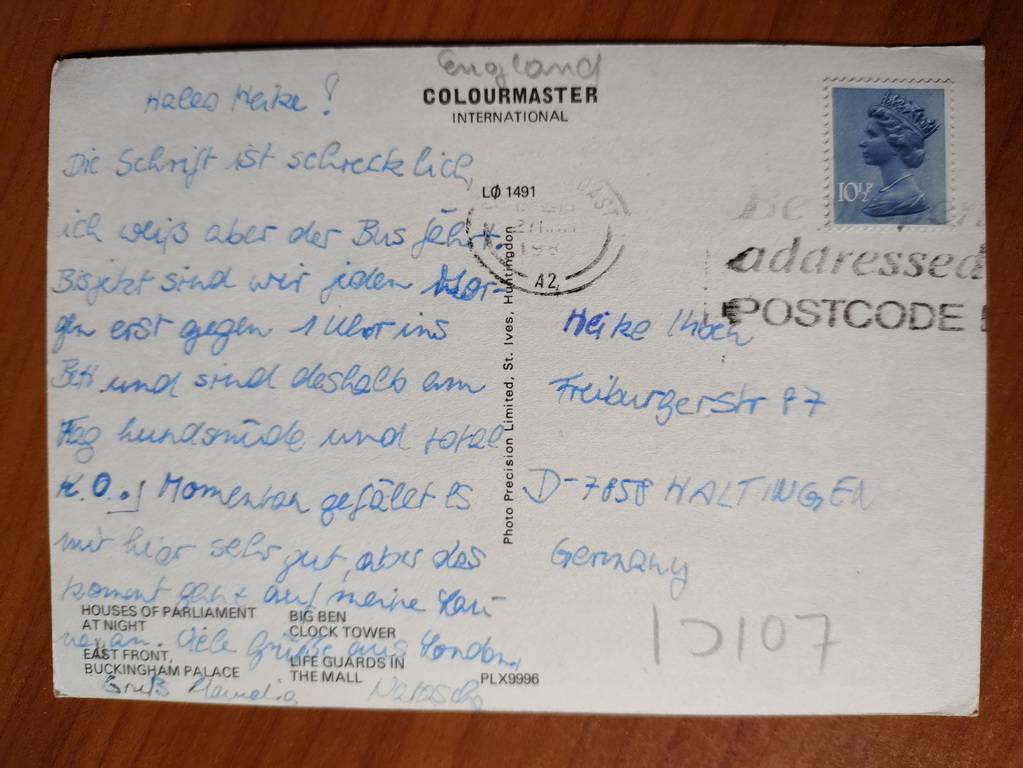 England
COLOURMASTER
INTERNATIONAL
Hallo Heike!
Die Schrift ist schrecklich,
ich weiß aber der Bus fährt.
Bisjetzt sind wir jeden Mor-
gen erst gegen 1 Uhr ins
Bett und sind deshalb am
Tag hundsmüde und total
K.O.! Momentan gefällt es
mir hier sehr gut, aber das
kommt ganz auf meine Lau-
ne an. Viele Grüße aus London,
Gruß Natascha
LØ 1491
A2
10½P
Be
addressed
POSTCODE
Photo Precision Limited, St. Ives, Huntingdon
Heike Koch
Freiburgerstr 87
D-7858 HALTINGEN
Germany
HOUSES OF PARLIAMENT
AT NIGHT
BIG BEN
CLOCK TOWER
EAST FRONT,
BUCKINGHAM PALACE
LIFE GUARDS IN
THE MALL
PLX9996